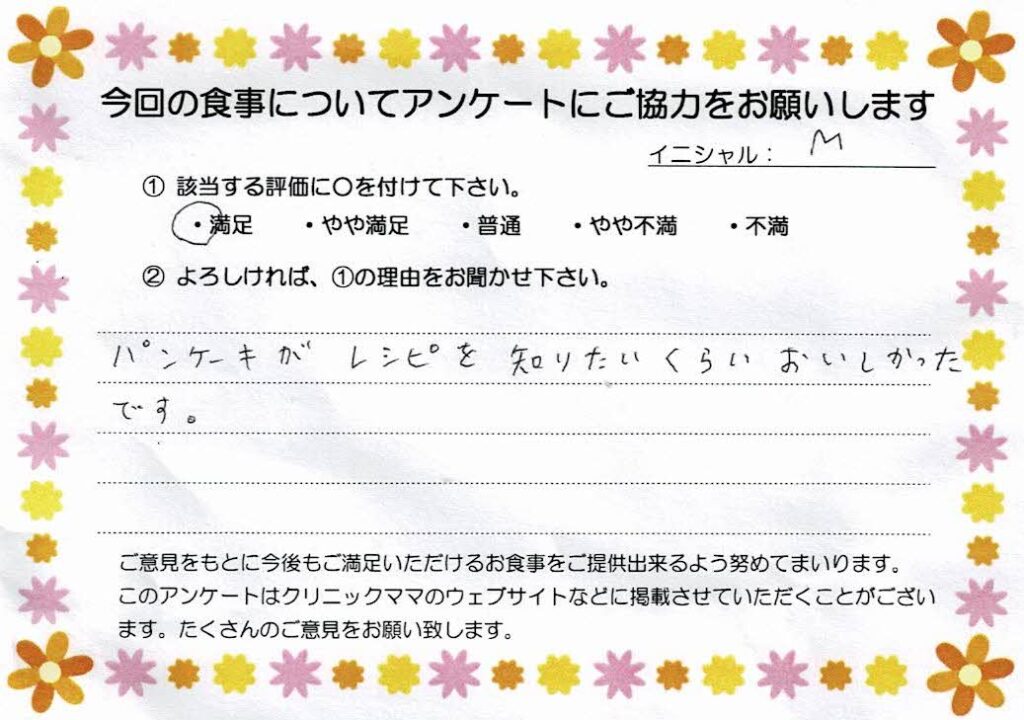 今回の食事についてアンケートにご協力をお願いします
イニシャル： M
① 該当する評価に〇を付けて下さい。
・満足 ・やや満足 ・普通 ・やや不満 ・不満
② よろしければ、①の理由をお聞かせ下さい。
パンケーキが レシピを 知りたいくらい おいしかった
です。
ご意見をもとに今後もご満足いただけるお食事をご提供出来るよう努めてまいります。
このアンケートはクリニックママのウェブサイトなどに掲載させていただくことがござい
ます。たくさんのご意見をお願い致します。